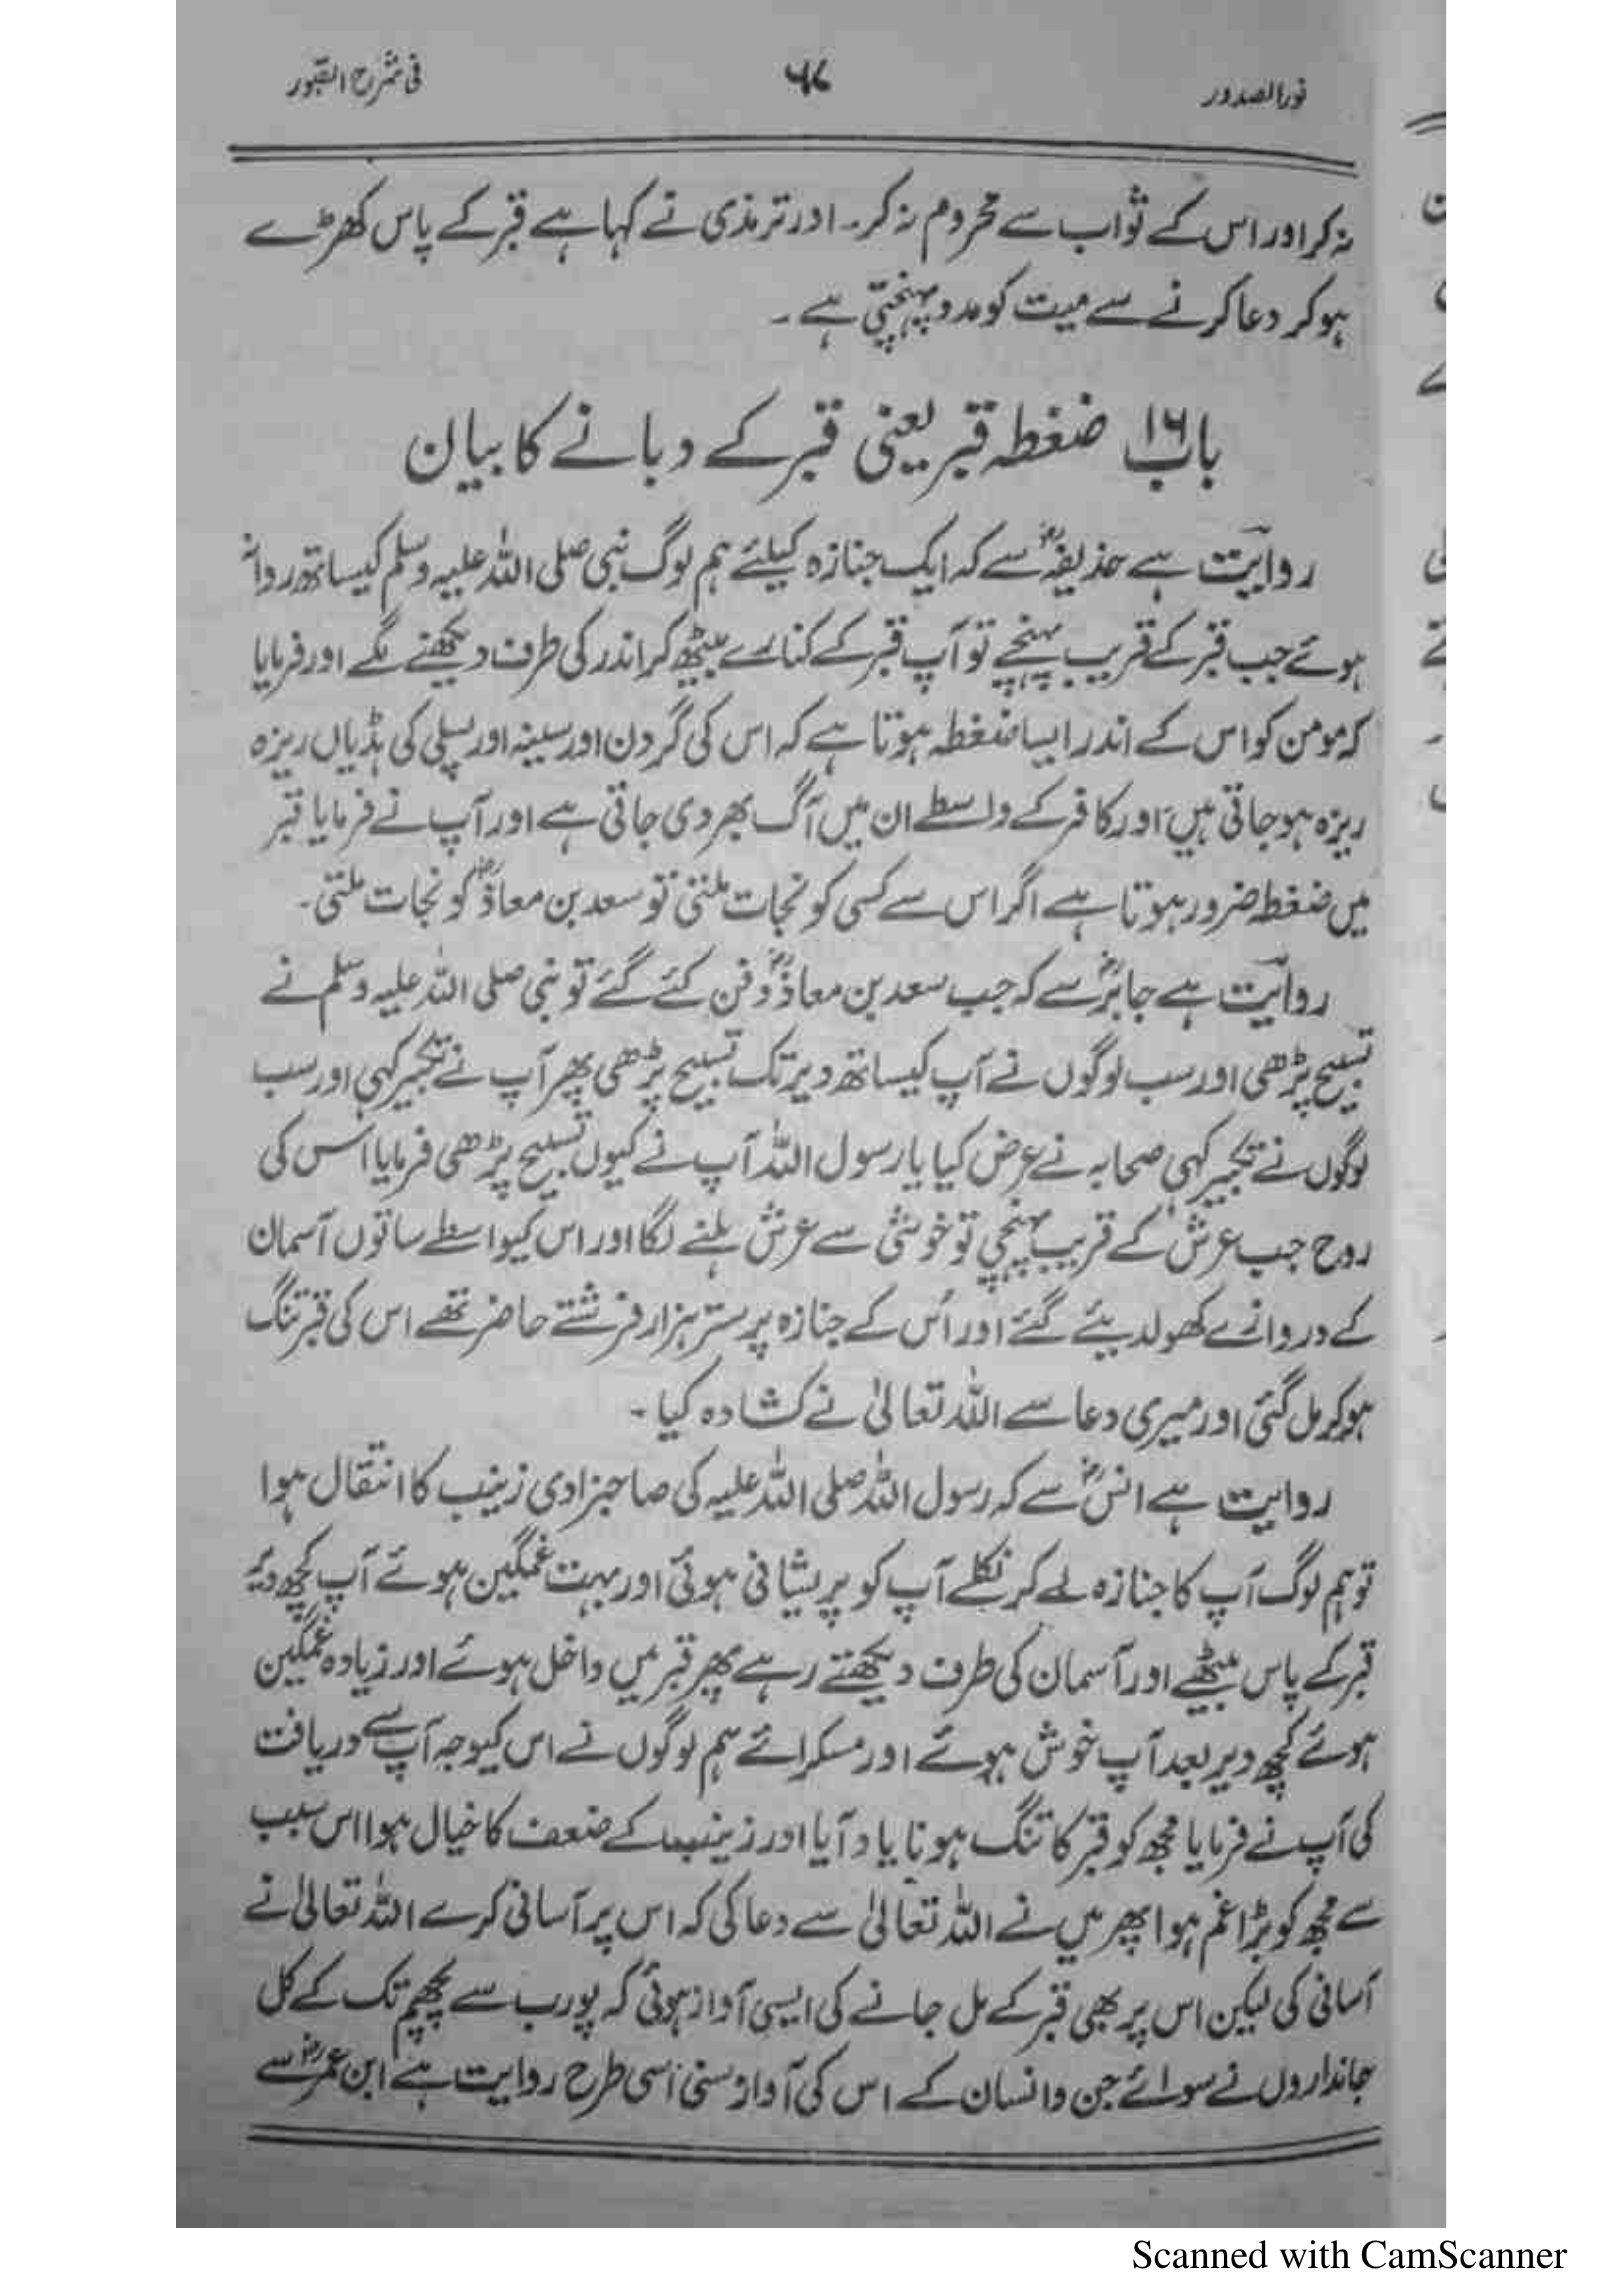 نورالصدور ۶۷ فی شرح القبور
نہ کر اور اس کے ثواب سے محروم نہ کر۔ اور ترمذی نے کہا ہے قبر کے پاس کھڑے
ہو کر دعا کرنے سے میت کو مدد پہنچتی ہے ۔
باب۱۶ ضغطہ قبر یعنی قبر کے دبانے کا بیان
روایت ہے حذیفہؓ سے کہ ایک جنازہ کیلئے ہم لوگ نبی صلی اللہ علیہ وسلم کیساتھ روانہ
ہوئے جب قبر کے قریب پہنچے تو آپ قبر کے کنارے بیٹھ کر اندر کی طرف دیکھنے لگے اور فرمایا
کہ مومن کو اس کے اندر ایسا ضغطہ ہوتا ہے کہ اس کی گردن اور سینہ اور پسلی کی ہڈیاں ریزہ
ریزہ ہو جاتی ہیں اور کافر کے واسطے ان میں آگ بھر دی جاتی ہے اور آپ نے فرمایا قبر
میں ضغطہ ضرور ہوتا ہے اگر اس سے کسی کو نجات ملتی تو سعد بن معاذؓ کو نجات ملتی۔
روایت ہے جابرؓ سے کہ جب سعد بن معاذؓ دفن کئے گئے تو نبی صلی اللہ علیہ وسلم نے
تسبیح پڑھی اور سب لوگوں نے آپ کیساتھ دیر تک تسبیح پڑھی پھر آپ نے تکبیر کہی اور سب
لوگوں نے تکبیر کہی صحابہ نے عرض کیا یا رسول اللہ آپ نے کیوں تسبیح پڑھی فرمایا اس کی
روح جب عرش کے قریب پہنچی تو خوشی سے عرش ہلنے لگا اور اس کیواسطے ساتوں آسمان
کے دروازے کھولدیئے گئے اور اُس کے جنازہ پر ستر ہزار فرشتے حاضر تھے اس کی قبر تنگ
ہو کر مل گئی اور میری دعا سے اللہ تعالیٰ نے کشادہ کیا ۔
روایت ہے انسؓ سے کہ رسول اللہ صلی اللہ علیہ کی صاحبزادی زینب کا انتقال ہوا
تو ہم لوگ آپ کا جنازہ لے کر نکلے آپ کو پریشانی ہوئی اور بہت غمگین ہوئے آپ کچھ دیر
قبر کے پاس بیٹھے اور آسمان کی طرف دیکھتے رہے پھر قبر میں داخل ہوئے اور زیادہ غمگین
ہوئے کچھ دیر بعد آپ خوش ہوئے اور مسکرائے ہم لوگوں نے اس کیوجہ آپ سے دریافت
کی آپ نے فرمایا مجھ کو قبر کا تنگ ہونا یاد آیا اور زینب کے ضعف کا خیال ہوا اس سبب
سے مجھ کو بڑا غم ہوا پھر میں نے اللہ تعالیٰ سے دعا کی کہ اس پر آسانی کرے اللہ تعالیٰ نے
آسانی کی لیکن اس پر بھی قبر کے مل جانے کی ایسی آواز ہوئی کہ پورب سے پچھم تک کے کل
جانداروں نے سوائے جن و انسان کے اس کی آواز سنی اسی طرح روایت ہے ابن عمرؓ سے
Scanned with CamScanner